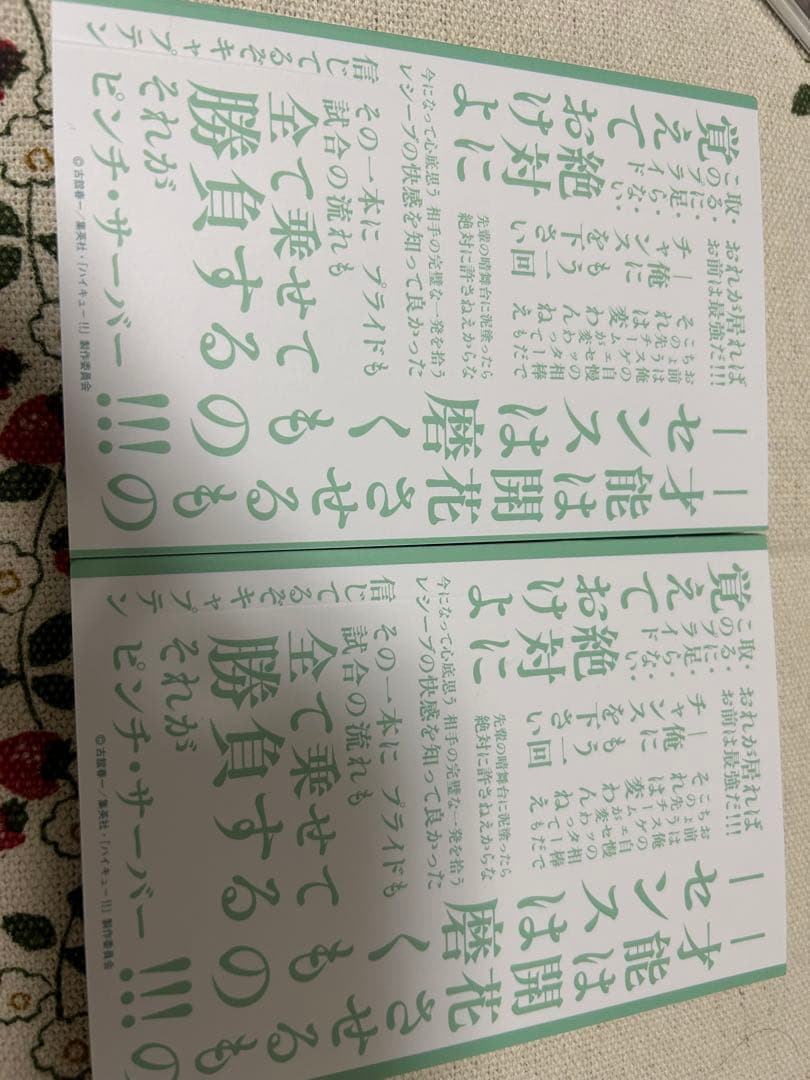 おれが居れば
お前は最強だ!!!
このプライド
取るに足らない
覚えておけよ
絶対に
俺にもう一回
チャンスを下さい
お前は俺の自慢の相棒で
ちょうスゲェセッターだ
この先チームが変わっても
それは変わんねえ
先輩の晴舞台に泥塗ったら
絶対に許さねえからな
今になって心底思う 相手の完璧な一発を拾う
レシーブの快感を知って良かった
才能は開花させるもの
センスは磨くもの
その一本に プライドも
試合の流れも
全て乗せて
勝負するの
信じてるぞキャプテン
それが
ピンチ・サーバー!!!
©古舘春一/集英社・「ハイキュー!!」製作委員会
おれが居れば
お前は最強だ!!!
このプライド
取るに足らない
覚えておけよ
絶対に
俺にもう一回
チャンスを下さい
お前は俺の自慢の相棒で
ちょうスゲェセッターだ
この先チームが変わっても
それは変わんねえ
先輩の晴舞台に泥塗ったら
絶対に許さねえからな
今になって心底思う 相手の完璧な一発を拾う
レシーブの快感を知って良かった
才能は開花させるもの
センスは磨くもの
その一本に プライドも
試合の流れも
全て乗せて
勝負するの
信じてるぞキャプテン
それが
ピンチ・サーバー!!!
©古舘春一/集英社・「ハイキュー!!」製作委員会